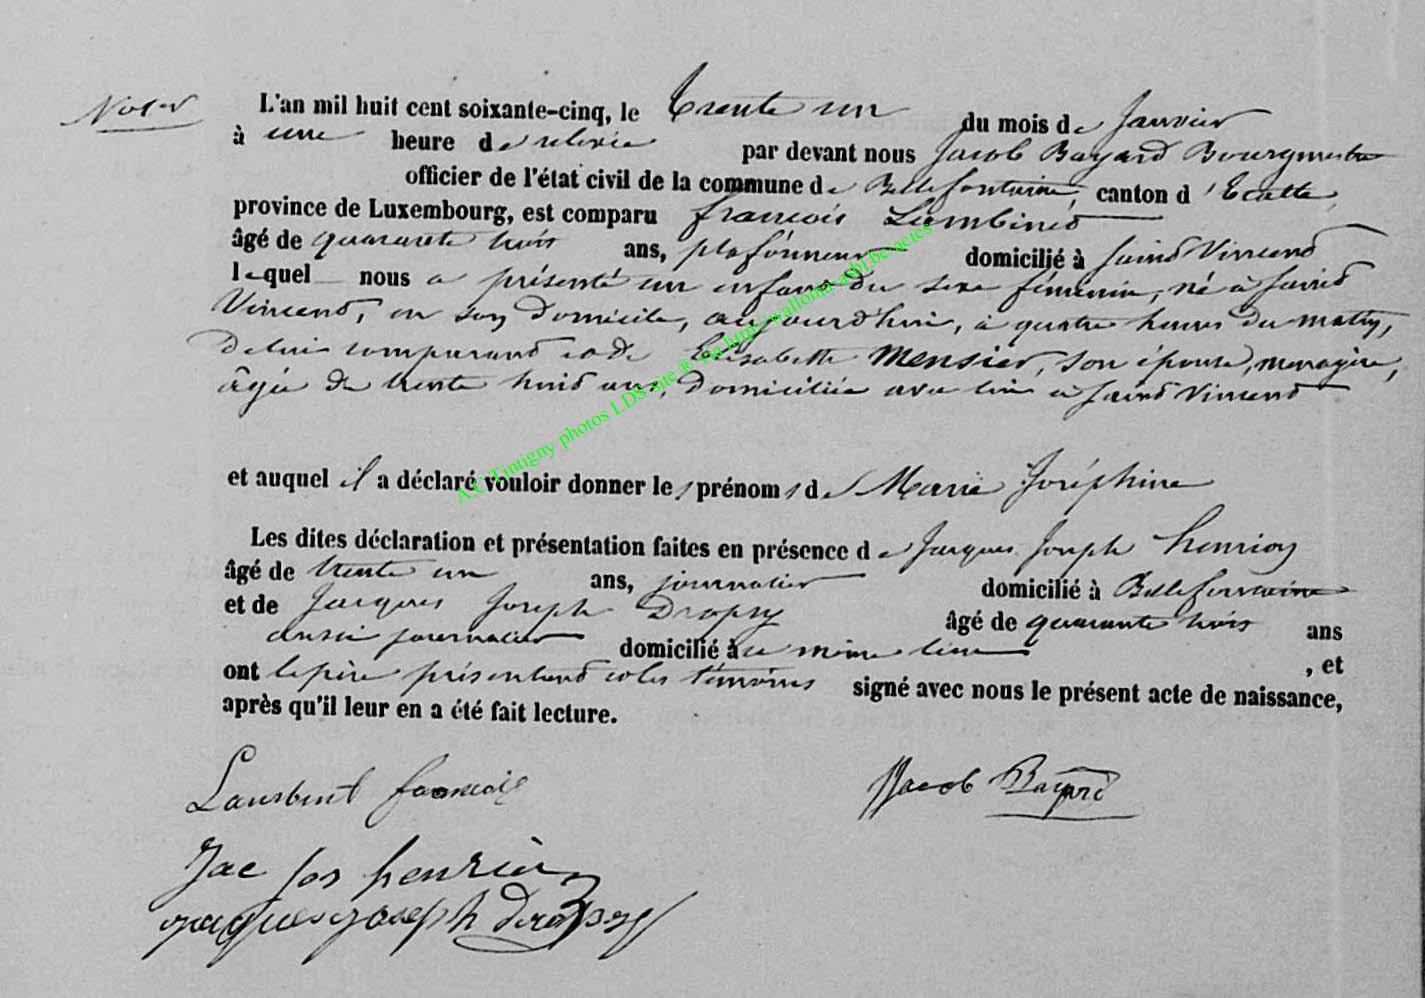 L'an mil huit cent soixante-cinq, le trente un du mois de Janvier
à une heure de relevée par devant nous Jacob Bayard Bourgmestre
officier de l'état civil de la commune de Bellefontaine, canton d'Etalle,
province de Luxembourg, est comparu françois Lambinet
âgé de quarante trois ans, plafonneur domicilié à Saint Vincent
lequel nous a présenté un enfant du sexe féminin, né à Saint
Vincent, en son domicile, aujourd'hui, à quatre heures du matin,
de lui comparant et de Elisabeth Mensier, son épouse, menagère,
âgée de trente huit ans, domiciliée avec lui à Saint Vincent
et auquel il a déclaré vouloir donner les prénoms de Marie Joséphine
Les dites déclaration et présentation faites en présence de Jacques Joseph henrion
âgé de trente un ans, journalier domicilié à Bellefontaine
et de Jacques Joseph Dropsy âgé de quarante trois ans
aussi journalier domicilié au même lieu , et
ont le père présentant et les témoins signé avec nous le présent acte de naissance,
après qu'il leur en a été fait lecture.
françois Jacob Bayard
Jac Jos henrion
jaques joseph dropsy
A.C Tintigny photos LDS site ® via http://wallonia-asbl.be/actes